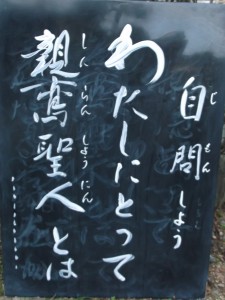 自問しよう
じもん
わたしにとって
親鸞聖人とは
しんらんしょうにん